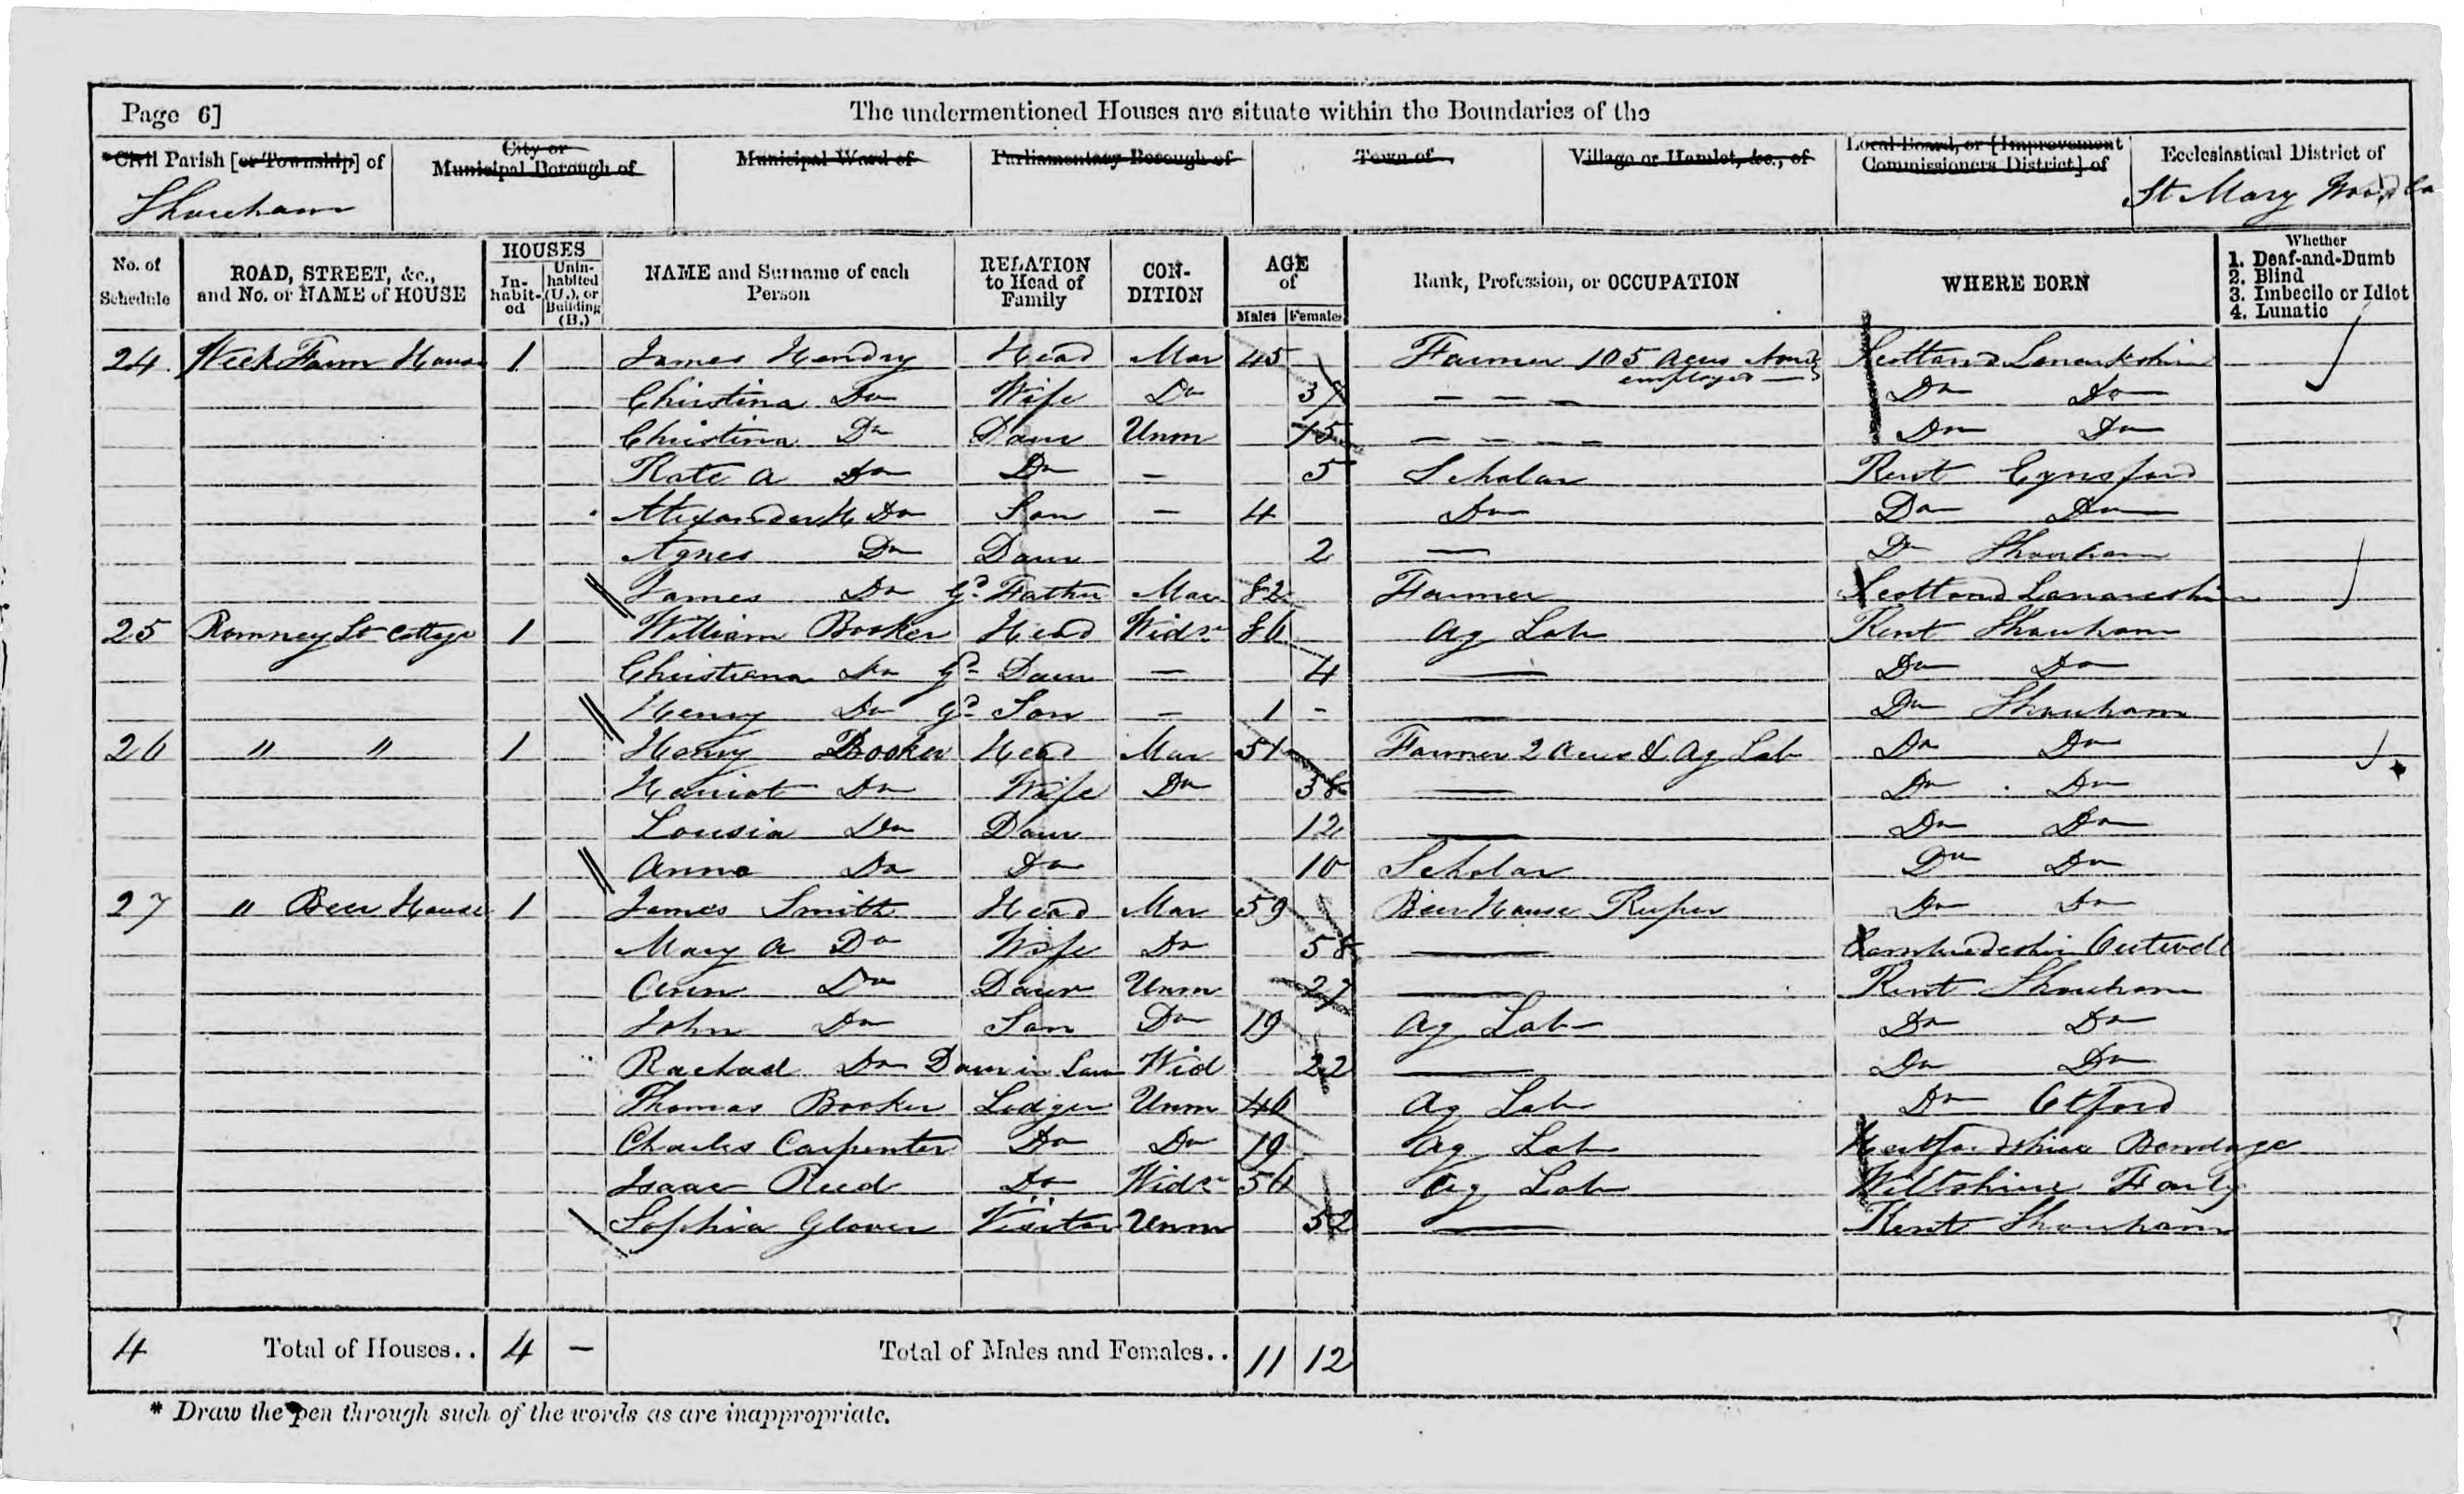 Page 6]
The undermentioned Houses are situate within the Boundaries of the
*Civil Parish [or Township] of
City or Municipal Borough of
Municipal Ward of
Parliamentary Borough of
Town of
Village or Hamlet, &c., of
Local Board, or [Improvement Commissioners District] of
Ecclesiastical District of
Shoreham
St Mary
No. of Schedule
ROAD, STREET, &c., and No. or NAME of HOUSE
HOUSES
In-habit-ed
Unin-habited (U.), or Building (B.)
NAME and Surname of each Person
RELATION to Head of Family
CON-DITION
AGE of
Males
Females
Rank, Profession, or OCCUPATION
WHERE BORN
Whether
1. Deaf-and-Dumb
2. Blind
3. Imbecile or Idiot
4. Lunatic
24 Farm House 1 James Hendry Head Mar 45 Farmer 105 Acres employs Scotland Lanarkshire
Christina Do Wife Do 37 — — — Do Do
Christina Do Daur Unm 15 — — — — Do Do
Kate A Do Do — 5 Scholar Kent Eynsford
Alexander H Do Son — 4 Do Do Do
Agnes Do Daur 2 — Do Shoreham
James Do Gd Father Mar 82 Farmer Scotland Lanarkshire
25 Romney St Cottage 1 William Booker Head Widr 86 Ag Lab Kent Shoreham
Christiana Do Gd Daur — 4 — Do Do
Henry Do Gd Son — 1 - — Do Shoreham
26 " " 1 Henry Booker Head Mar 51 Farmer 2 Acres & Ag Lab Do Do
Harriot Do Wife Do 38 — Do Do
Lousia Do Daur 12 — Do Do
Anne Do Do 10 Scholar Do Do
27 " Beer House 1 James Smith Head Mar 59 Beer House Keeper Do Do
Mary A Do Wife Do 58 — Outwell
Ann Do Daur Unm 27 — Kent Shoreham
John Do Son Do 19 Ag Lab Do Do
Rachael Do Daur in Law Wid 22 — Do Do
Thomas Booker Lodger Unm 46 Ag Lab Do Otford
Charles Carpenter Do Do 19 Ag Lab Hertfordshire
Isaac Reed Do Widr 56 Ag Lab Wiltshire
Sophia Glover Visitor Unm 52 — Kent Shoreham
4 Total of Houses.. 4 — Total of Males and Females.. 11 12
* Draw the pen through such of the words as are inappropriate.